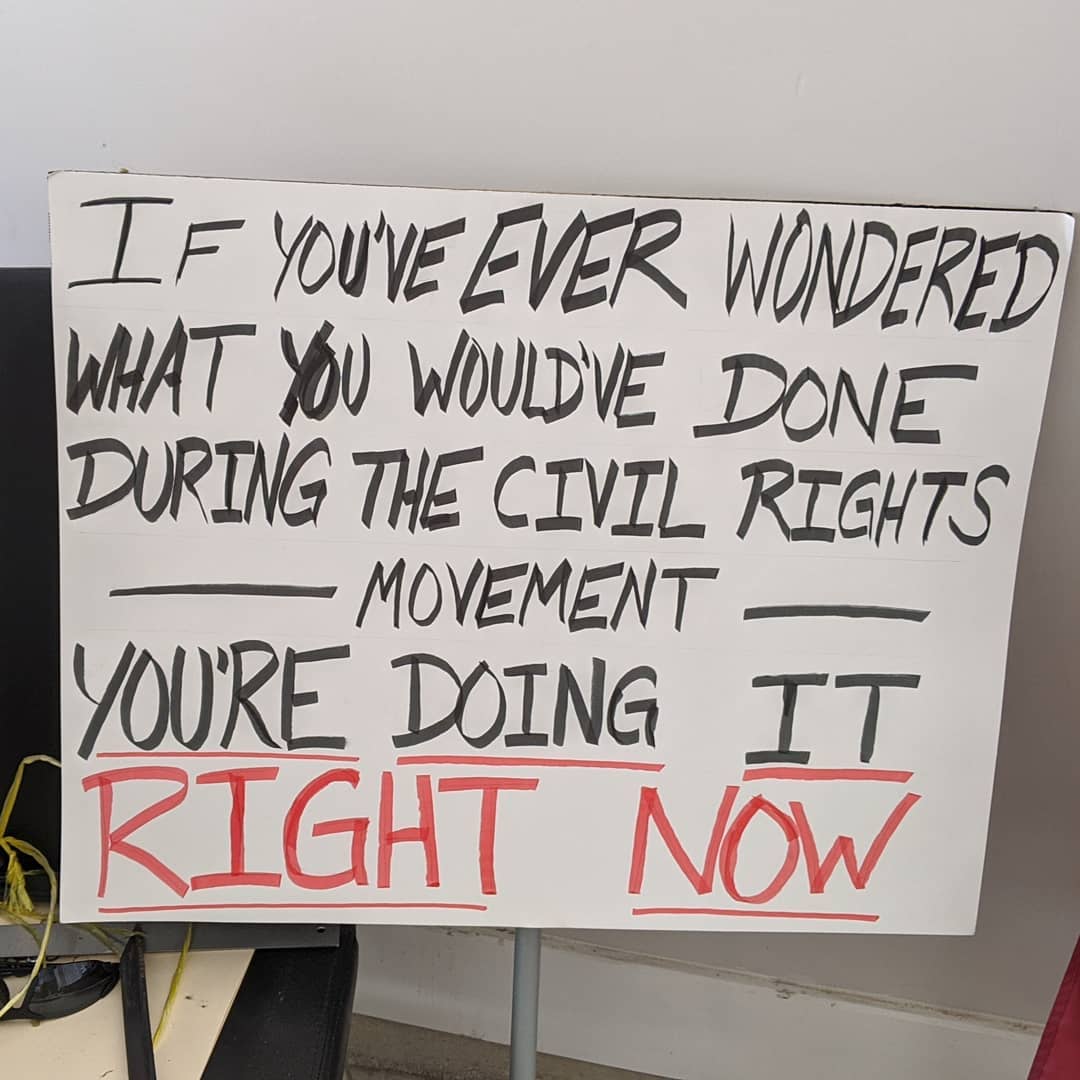 IF YOU'VE EVER WONDERED
WHAT YOU WOULD'VE DONE
DURING THE CIVIL RIGHTS
MOVEMENT
YOU'RE DOING IT
RIGHT NOW